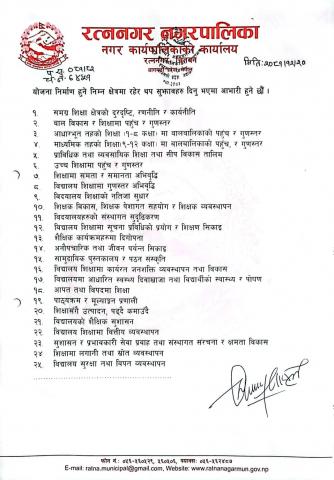 रत्ननगर नगरपालिका
नगर कार्यपालिकाको कार्यालय
रत्ननगर, चितवन
प.सं. ०८१/८२
च.नं. ६४५१
मिति: २०८१/१२/२०
योजना निर्माण हुने निम्न क्षेत्रमा रहेर थप सुझावहरु दिनु भएमा आभारी हुने छौं ।
१. समग्र शिक्षा क्षेत्रको दुरदृष्टि, रणनीति र कार्यनीति
२. बाल विकास र शिक्षामा पहुंच र गुणस्तर
३. आधारभूत तहको शिक्षा (१-८ कक्षा) मा बालबालिकाको पहुंच र गुणस्तर
४. माध्यमिक तहको शिक्षा(९-१२ कक्षा) मा बालबालिकाको पहुंच, र गुणस्तर
५. प्राविधिक तथा व्यवसायिक शिक्षा तथा सीप विकास तालिम
६. उच्च शिक्षामा पहुंच र गुणस्तर
७ शिक्षामा समता र समानता अभिवृद्धि
८ विद्यालय शिक्षामा गुणस्तर अभिवृद्धि
९. विद्यालय शिक्षाको नतिजा सुधार
१० शिक्षक विकास, शिक्षक पेशागत सहयोग र शिक्षक व्यवस्थापन
११ विद्यालयहरुको संस्थागत सुदृढिकरण
१२. विद्यालय शिक्षामा सूचना प्रविधिको प्रयोग र शिक्षण सिकाइ
१३ शैक्षिक कार्यक्रमहरूमा दिगोपना
१४. अनौपचारिक तथा जीवन पर्यन्त सिकाइ
१५. सामुदायिक पुस्तकालय र पठन संस्कृति
१६ विद्यालय शिक्षामा कार्यरत जनशक्ति व्यवस्थापन तथा विकास
१७ विद्यालयमा आधारित स्वस्थ्य दिवाखाजा तथा विद्यार्थीको स्वास्थ्य र पोषण
१८ आपत तथा विपदमा शिक्षा
१९ पाठ्यक्रम र मूल्याङ्कन प्रणाली
२०. शिक्षासँगै उत्पादन, पढ्दै कमाउँदै
२१ विद्यालयको शैक्षिक सुशासन
२२ विद्यालय शिक्षामा वित्तीय व्यवस्थापन
२३ सुशासन र प्रभावकारी सेवा प्रवाह तथा संस्थागत संरचना र क्षमता विकास
२४ शिक्षामा लगानी तथा स्रोत व्यवस्थापन
२५ विद्यालय सुरक्षा तथा विपत व्यवस्थापन
E-mail: ratna.municipal@gmail.com, Website: www.ratnanagarmun.gov.np